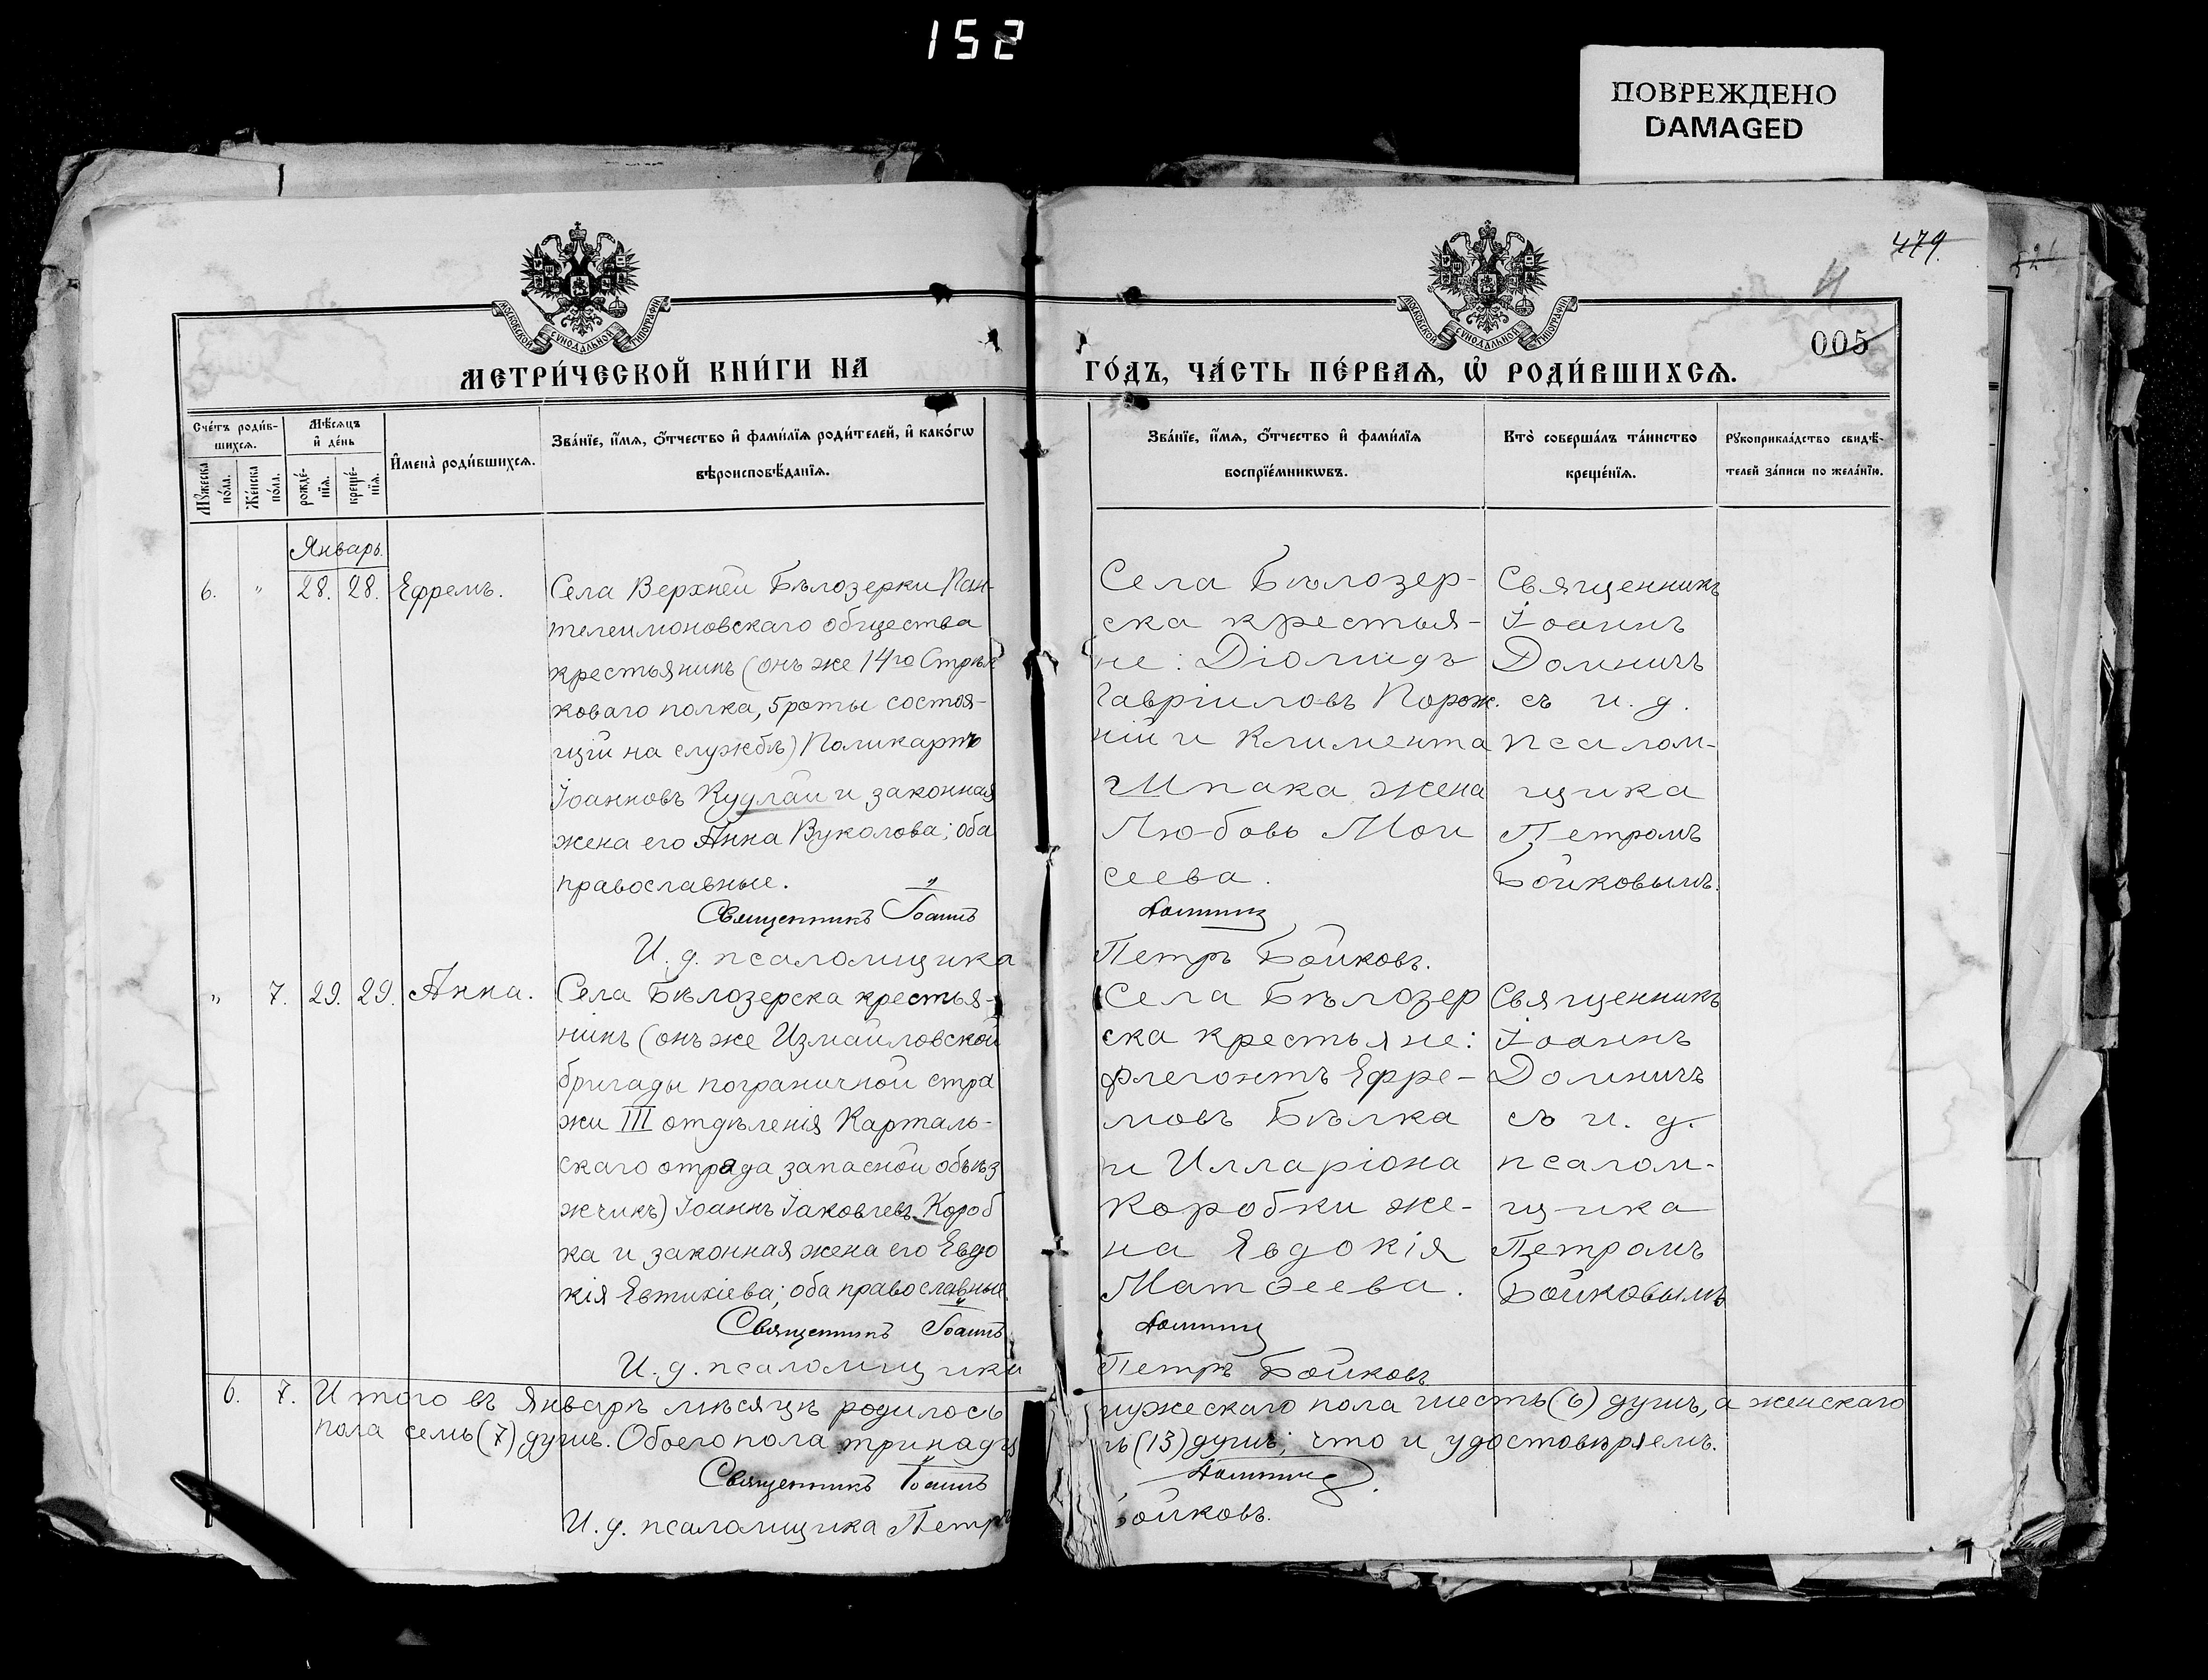 152
ПОВРЕЖДЕНО
DAMAGED
479.
005
МОСКОВСКОЙ СѴНОДАЛЬНОЙ ТИПОГРАФІИ
МОСКОВСКОЙ СѴНОДАЛЬНОЙ ТИПОГРАФІИ
МЕТРИ́ЧЕСКОЙ КНИ́ГИ НА
ГО́ДЪ, ЧА́СТЬ ПЕ́РВАѦ, Ѡ҆ РОДИ́ВШИХСѦ.
Сче́тъ роди́в-
шихсѧ.
Мꙋ́жеска
по́ла.
Же́нска
по́ла.
Мѣ́сѧцъ
и҆ де́нь
рожде́-
нїѧ.
креще́-
нїѧ.
И҆мена̀ роди́вшихсѧ.
Зва́нїе, и҆́мѧ, ѻ҆́тчество и҆ фами́лїѧ роди́телей, и҆ како́гѡ
вѣроисповѣ́данїѧ.
Зва́нїе, и҆́мѧ, ѻ҆́тчество и҆ фами́лїѧ
воспрїе́мникѡвъ.
Кто̀ соверша́лъ та́инство
креще́нїѧ.
Рꙋкоприкла́дство свидѣ́-
телей за́писи по жела́нїю.
Январь.
6. " 28. 28. Ефремъ.
Села Верхней Бѣлозерки Пан-
телеимоновскаго общества
крестьянинъ (онъ же 14го Стрѣл
коваго полка, 5 роты состоя-
щій на службѣ) Поликарпъ
Іоанновъ Кудлай и законная
жена его Анна Вуколова; оба
православные.
Священникъ Іоаннъ
И. д. псаломщика
Села Бѣлозер-
ска крестья-
не: Діомидъ
Гавріиловъ Порож.
ній и Климента
Шпака жена
Любовь Мои
сеева.
Домнич
Петръ Бойковъ.
Священникъ
Іоаннъ
Домничъ
съ и. д.
псалом-
щика
Петромъ
Бойковымъ.
" 7. 29. 29. Анна.
Села Бѣлозерска крестья-
нинъ (онъ же Измаиловской
бригады пограничной стра
жи III отдѣленія Карталь-
скаго отряда запасной объѣз
жчикъ) Іоаннъ Іаковлевъ Короб
ка и законная жена его Евдо
кія Евтихіева; оба православные.
Священникъ Іоаннъ
И. д. псаломщика
Села Бѣлозер
ска крестьяне:
Флегонтъ Ефре-
мовъ Бѣлка
и Илларіона
Коробки же-
на Евдокія
Матѳеева.
Домнич
Петръ Бойковъ
Священникъ
Іоаннъ
Домничъ
съ и. д.
псалом-
щика
Петромъ
Бойковымъ
6. 7. Итого въ Январѣ мѣсяцѣ родилось мужескаго пола шесть (6) душъ, а женскаго
пола семь (7) душъ. Обоего пола тринадца ть (13) душъ; что и удостовѣряемъ.
Священникъ Іоаннъ Домнич
И. д. псаломщика Петръ Бойковъ.